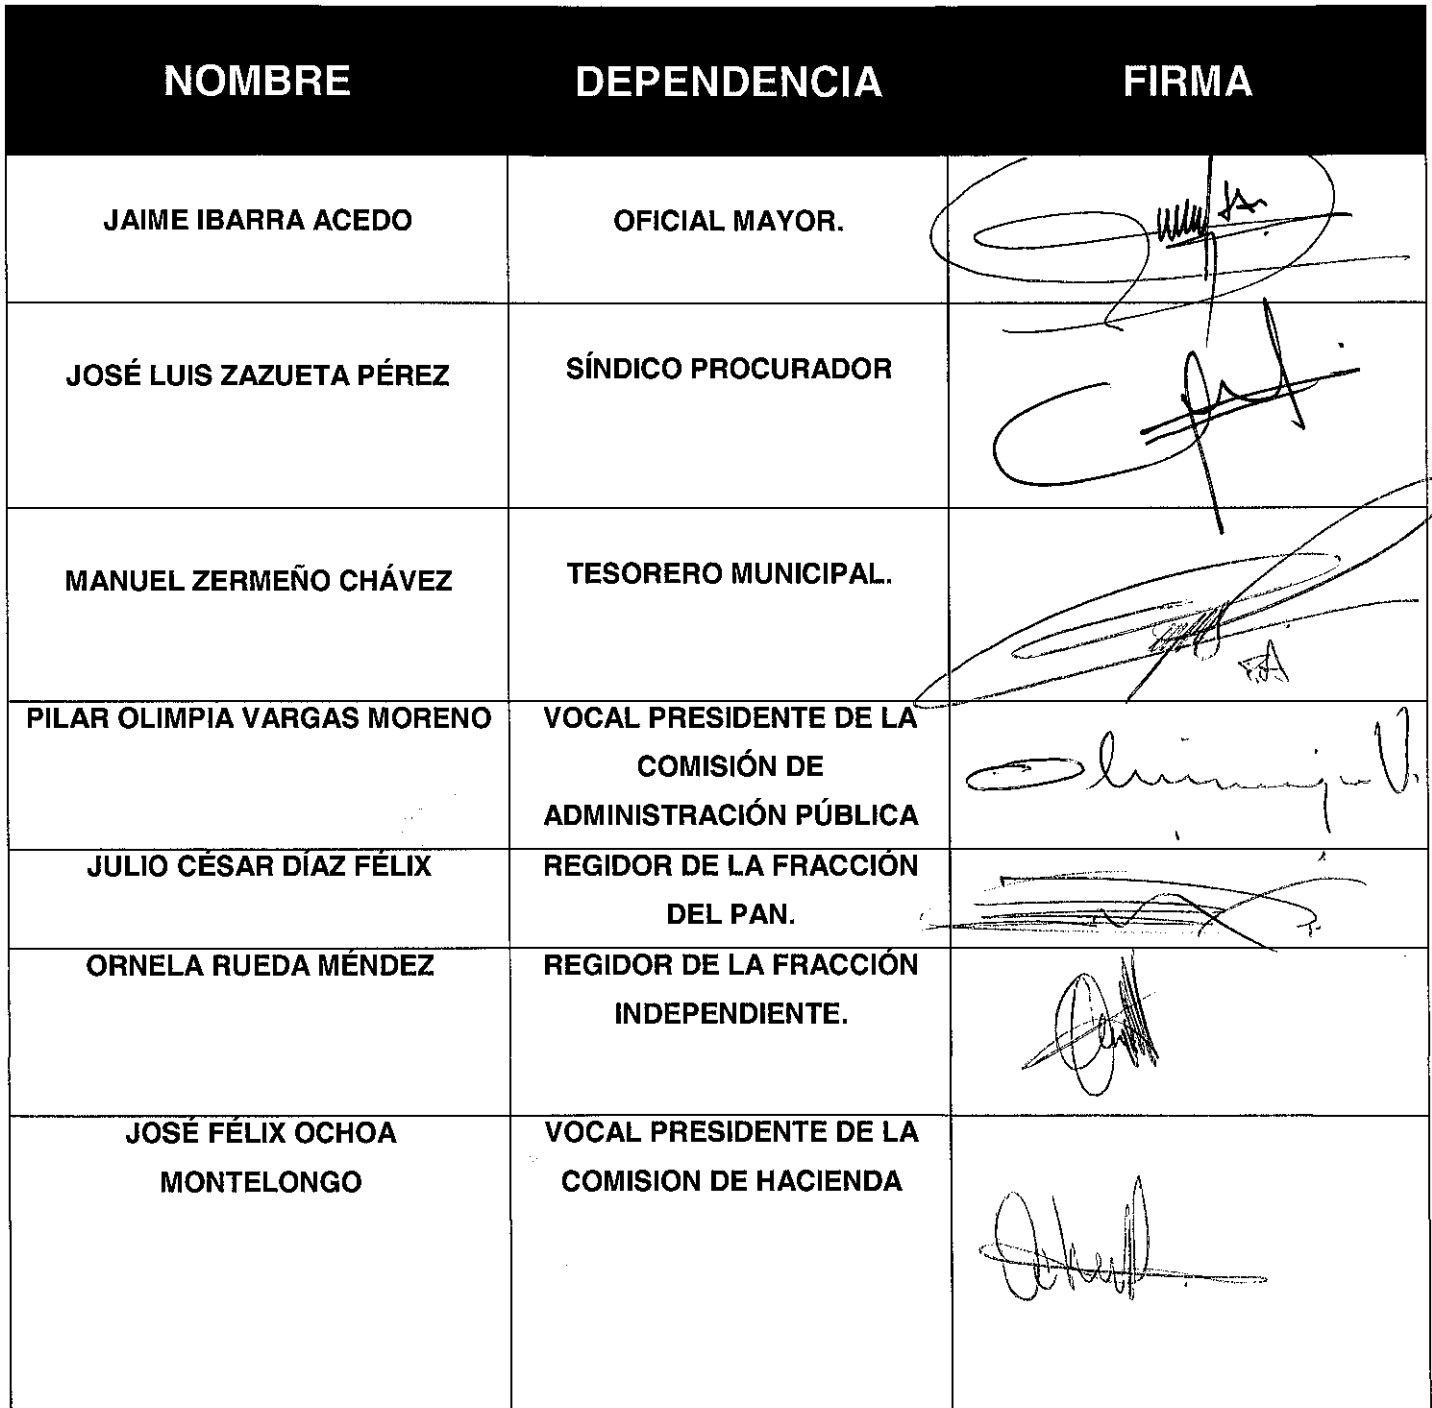 NOMBRE DEPENDENCIA FIRMA
JAIME IBARRA ACEDO OFICIAL MAYOR.
JOSÉ LUIS ZAZUETA PÉREZ SÍNDICO PROCURADOR
MANUEL ZERMEÑO CHÁVEZ TESORERO MUNICIPAL.
PILAR OLIMPIA VARGAS MORENO VOCAL PRESIDENTE DE LA
COMISIÓN DE
ADMINISTRACIÓN PÚBLICA
JULIO CÉSAR DÍAZ FÉLIX REGIDOR DE LA FRACCIÓN
DEL PAN.
ORNELA RUEDA MÉNDEZ REGIDOR DE LA FRACCIÓN
INDEPENDIENTE.
JOSÉ FÉLIX OCHOA VOCAL PRESIDENTE DE LA
MONTELONGO COMISION DE HACIENDA